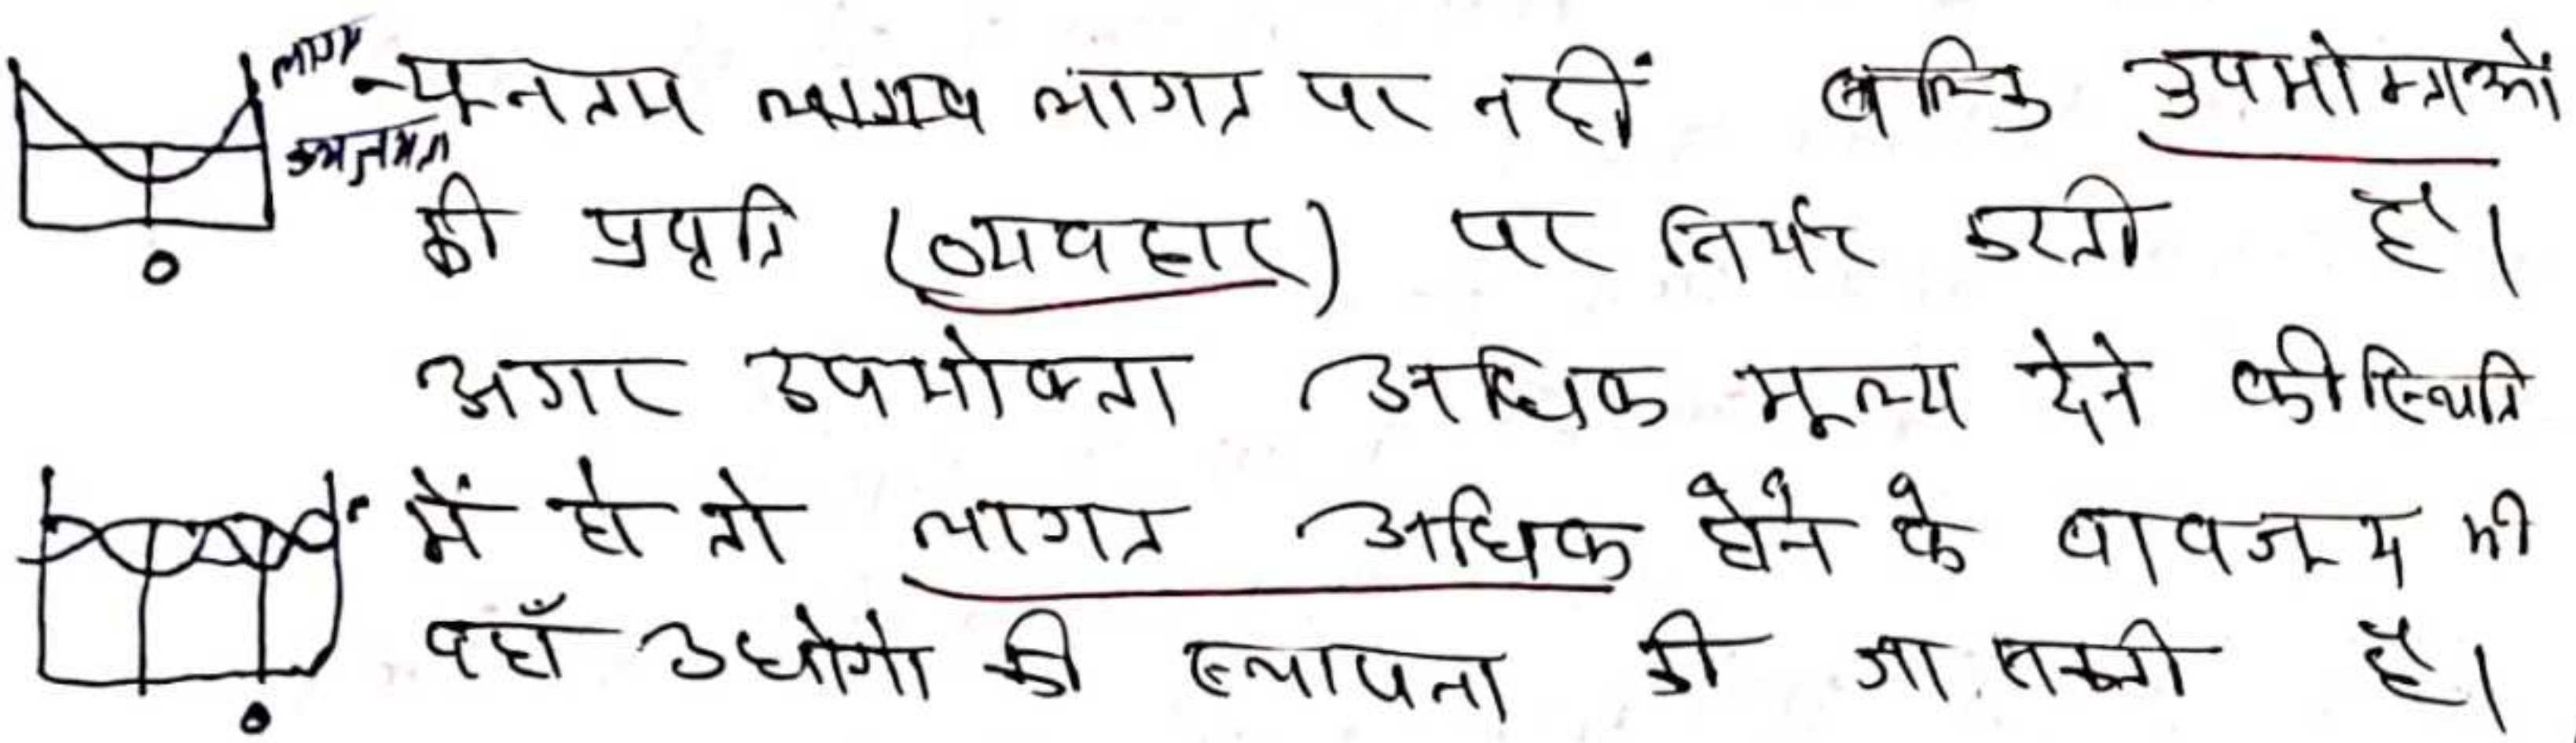 लागत
न्यूनतम लागत पर नहीं बल्कि उपभोक्ताओं
की प्रवृति (व्यवहार) पर निर्भर करती है।
अगर उपभोक्ता अधिक मूल्य देने की स्थिति
में हो तो लागत अधिक होने के बावजूद भी
वहाँ उधोगो की स्थापना की जा सकती है।